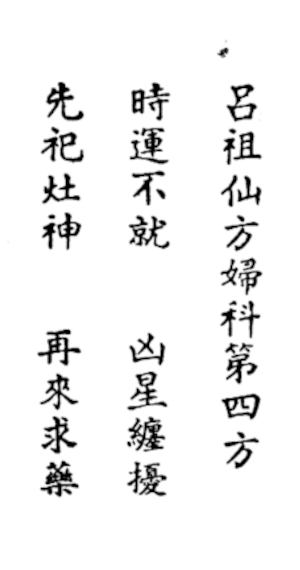 呂祖仙方婦科第四方
時運不就 凶星纏擾
先祀灶神 再來求藥